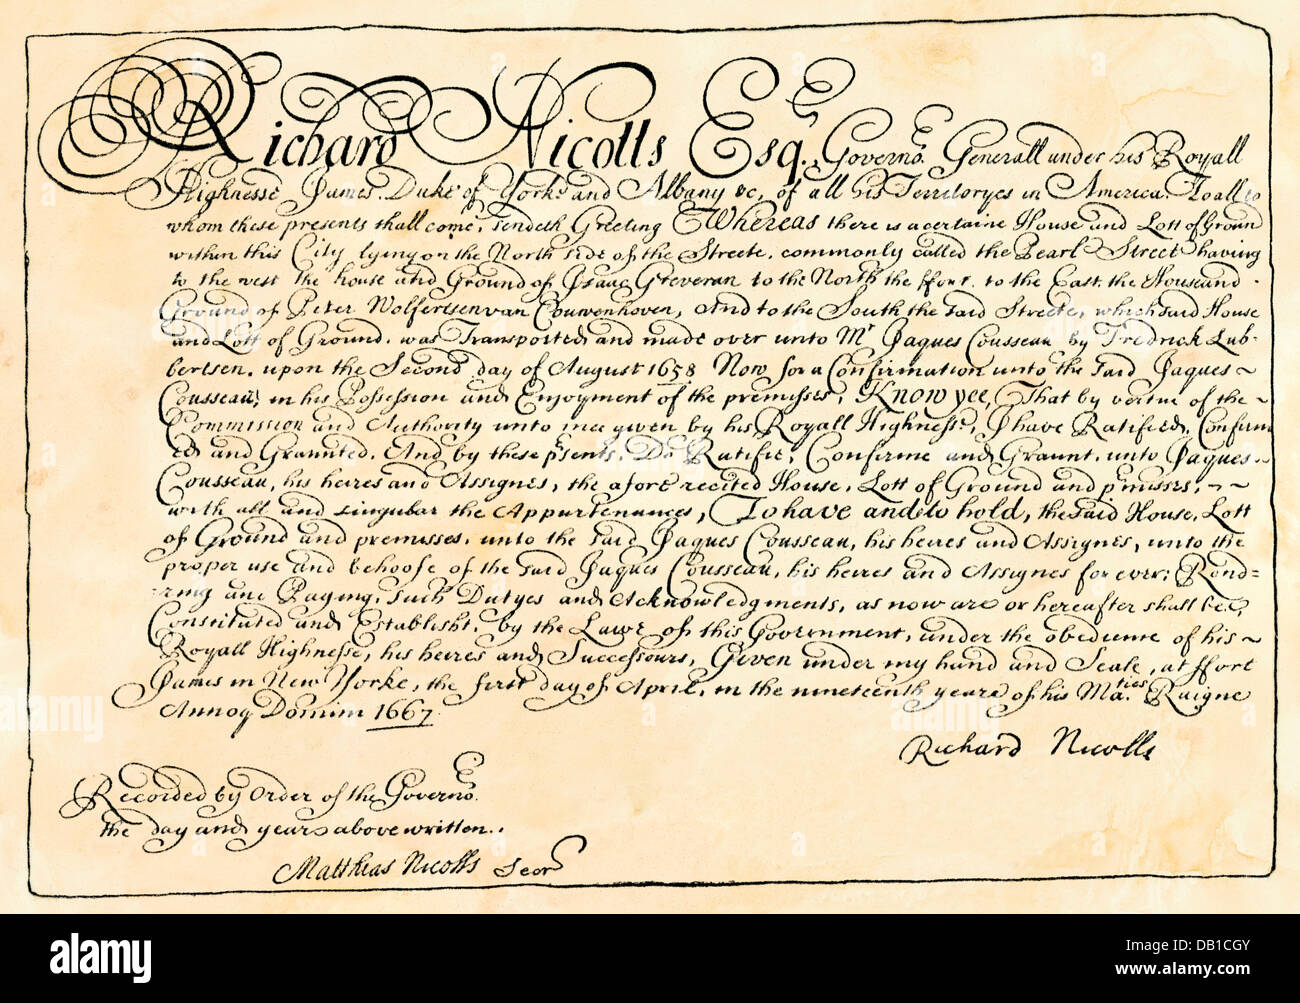 Richard Nicolls Esqr. Governor. Generall under his Royall
Highnesse James Duke of Yorke and Albany &c, of all his Territoryes in America. To all to
whom these presents shall come, sendeth Greeting Whereas there is a certaine House and Lott of Groun
within this City lying on the North side of the Streete, commonly called the Pearl Street having
to the west the house and Ground of Isaac Greveran to the North the ffort, to the East, the House and
Ground of Peter Wolfertsen van Couwenhoven, And to the South the said Streete, which said House
and Lott of Ground, was Transported and made over unto Mr Jaques Cousseau by Fredrick Lub-
bertsen, upon the Second day of August 1658 Now for a Confirmation unto the said Jaques
Cousseau, in his Possession and Enjoyment of the premisses, Know yee, That by vertue of the
Commission and Authority unto mee given by his Royall Highnesse, I have Ratified, Confirm
ed and Graunted, And by these prsents, Do Ratifie, Confirme and Graunt, unto Jaques
Cousseau, his heires and Assignes, the afore recited House, Lott of Ground and prmisses,
with all and singular the Appurtenances, To have and to hold, the said House, Lott
of Ground and premisses, unto the said Jaques Cousseau, his heires and Assignes, unto the
proper use and behoofe of the said Jaques Cousseau, his heires and Assignes for ever; Rend-
ring and Paying, such Dutyes and Acknowledgments, as now are or hereafter shall bee,
Constituted and Establisht, by the Lawes of this Government, under the obedience of his
Royall Highnesse, his heires and Successours, Given under my hand and Seale, at ffort
James in New Yorke, the first day of April, in the nineteenth yeare of his Ma.ties Raigne
Annoq Domini 1667
Richard Nicolls
Recorded by Order of the Governor.
the day and yeare above written.
Matthias Nicolls Secr
alamy
alamy
Image ID: DB1CGY
www.alamy.com